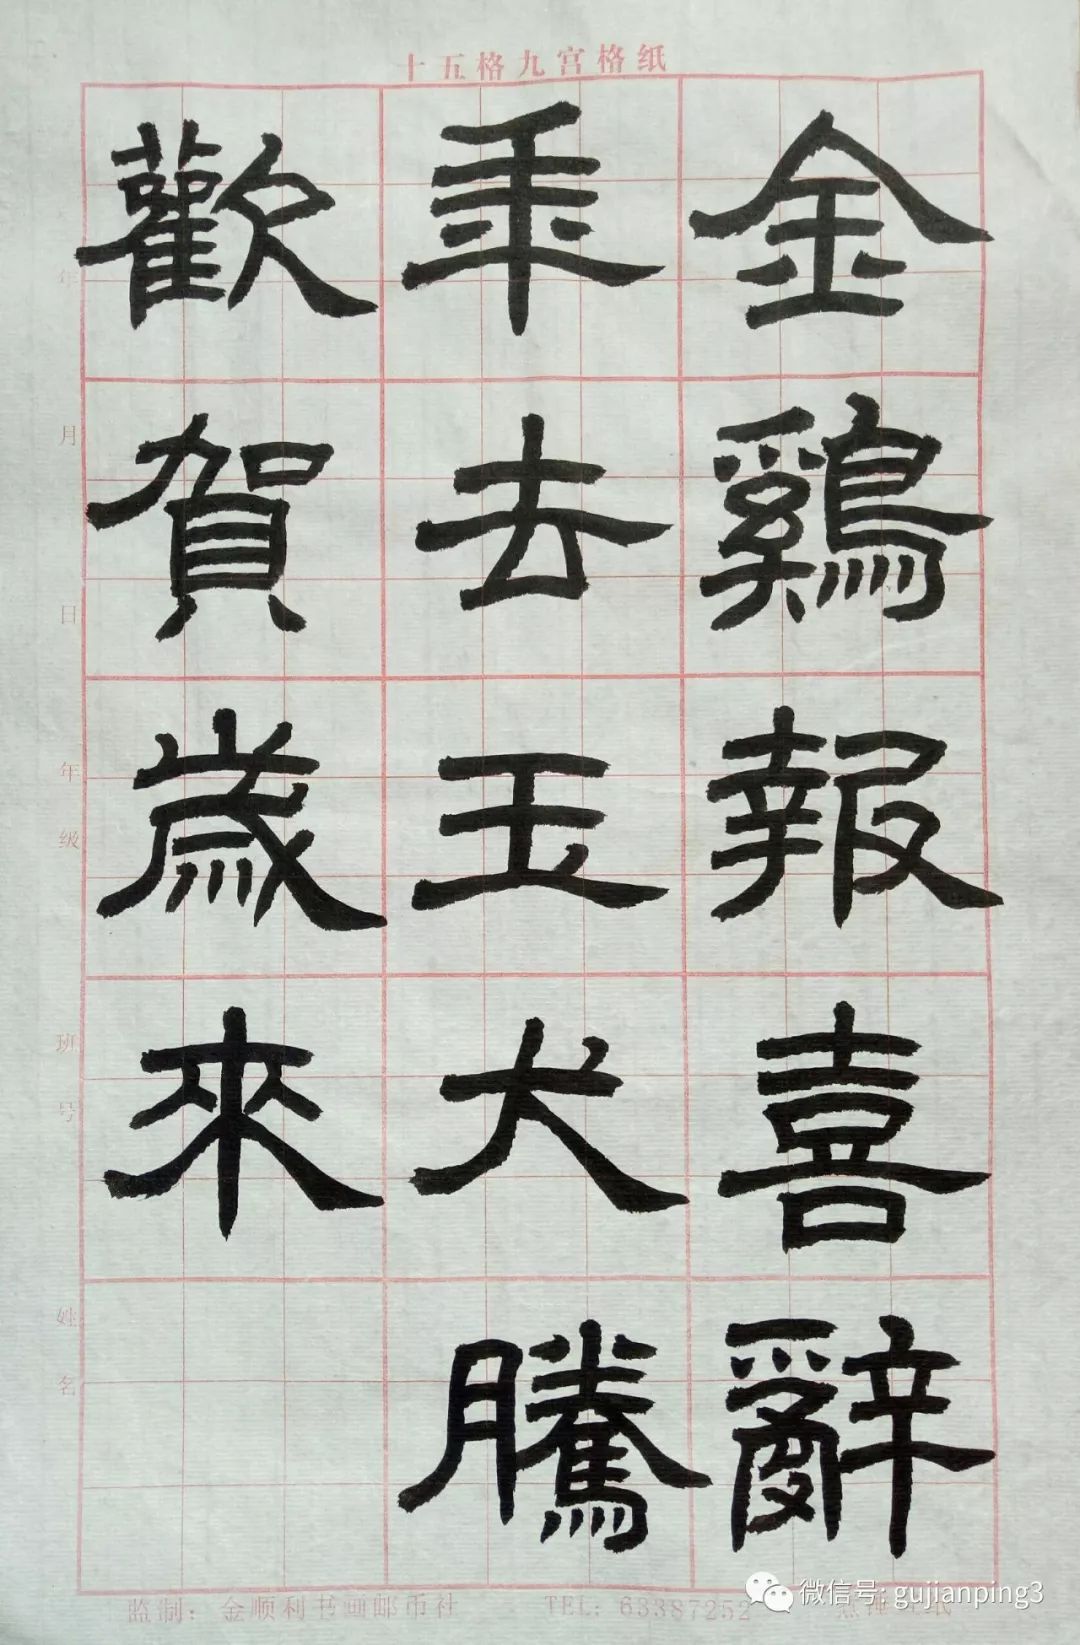 十五格九宫格纸
金鷄報喜辭
年去玉犬騰
歡賀歲來
年
月
日
年级
班号
姓名
监制：金顺利书画邮币社
TEL：63387252
微信号: gujianping3